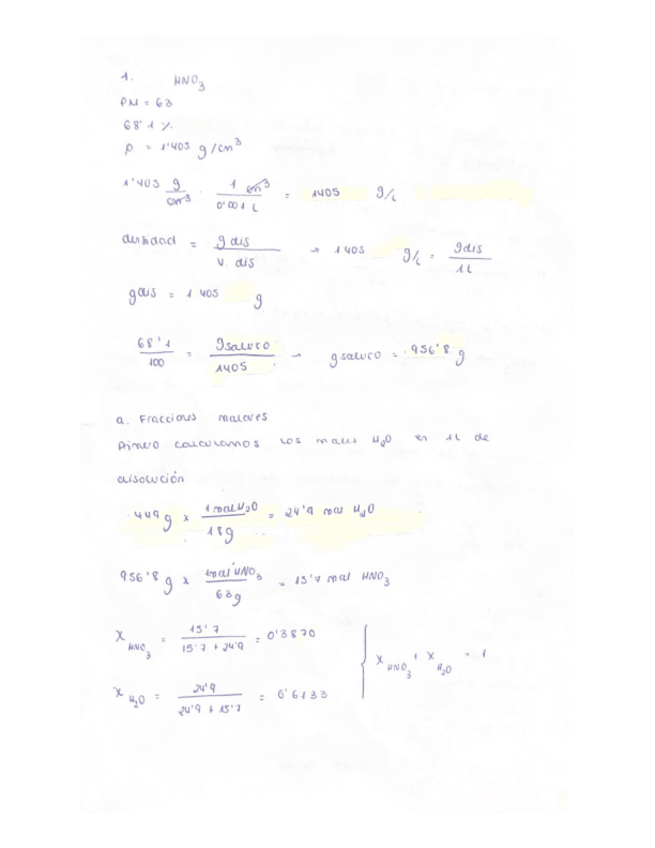 1. HNO3
PM = 63
68'1 %
ρ = 1'405 g/cm3
1'405 g/cm3 · 1 cm3/0'001 L = 1405 g/L
densidad = g dis/v. dis → 1405 g/L = g dis/1L
g dis = 1405 g
68'1/100 = g saluto/1405 → g saluto = 956'8 g
a. Fracciones malares
Primero calculamos los males H2O en 1L de
disolución
449 g x 1 mal H2O/18g = 24'9 mal H2O
956'8 g x 1mal HNO3/63g = 15'7 mal HNO3
X HNO3 = 15'7/15'7 + 24'9 = 0'3870
X HNO3 + X H2O = 1
X H2O = 24'9/24'9 + 15'7 = 0'6133